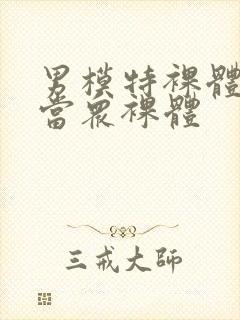 男模特裸體
當眾裸體
三戒大師